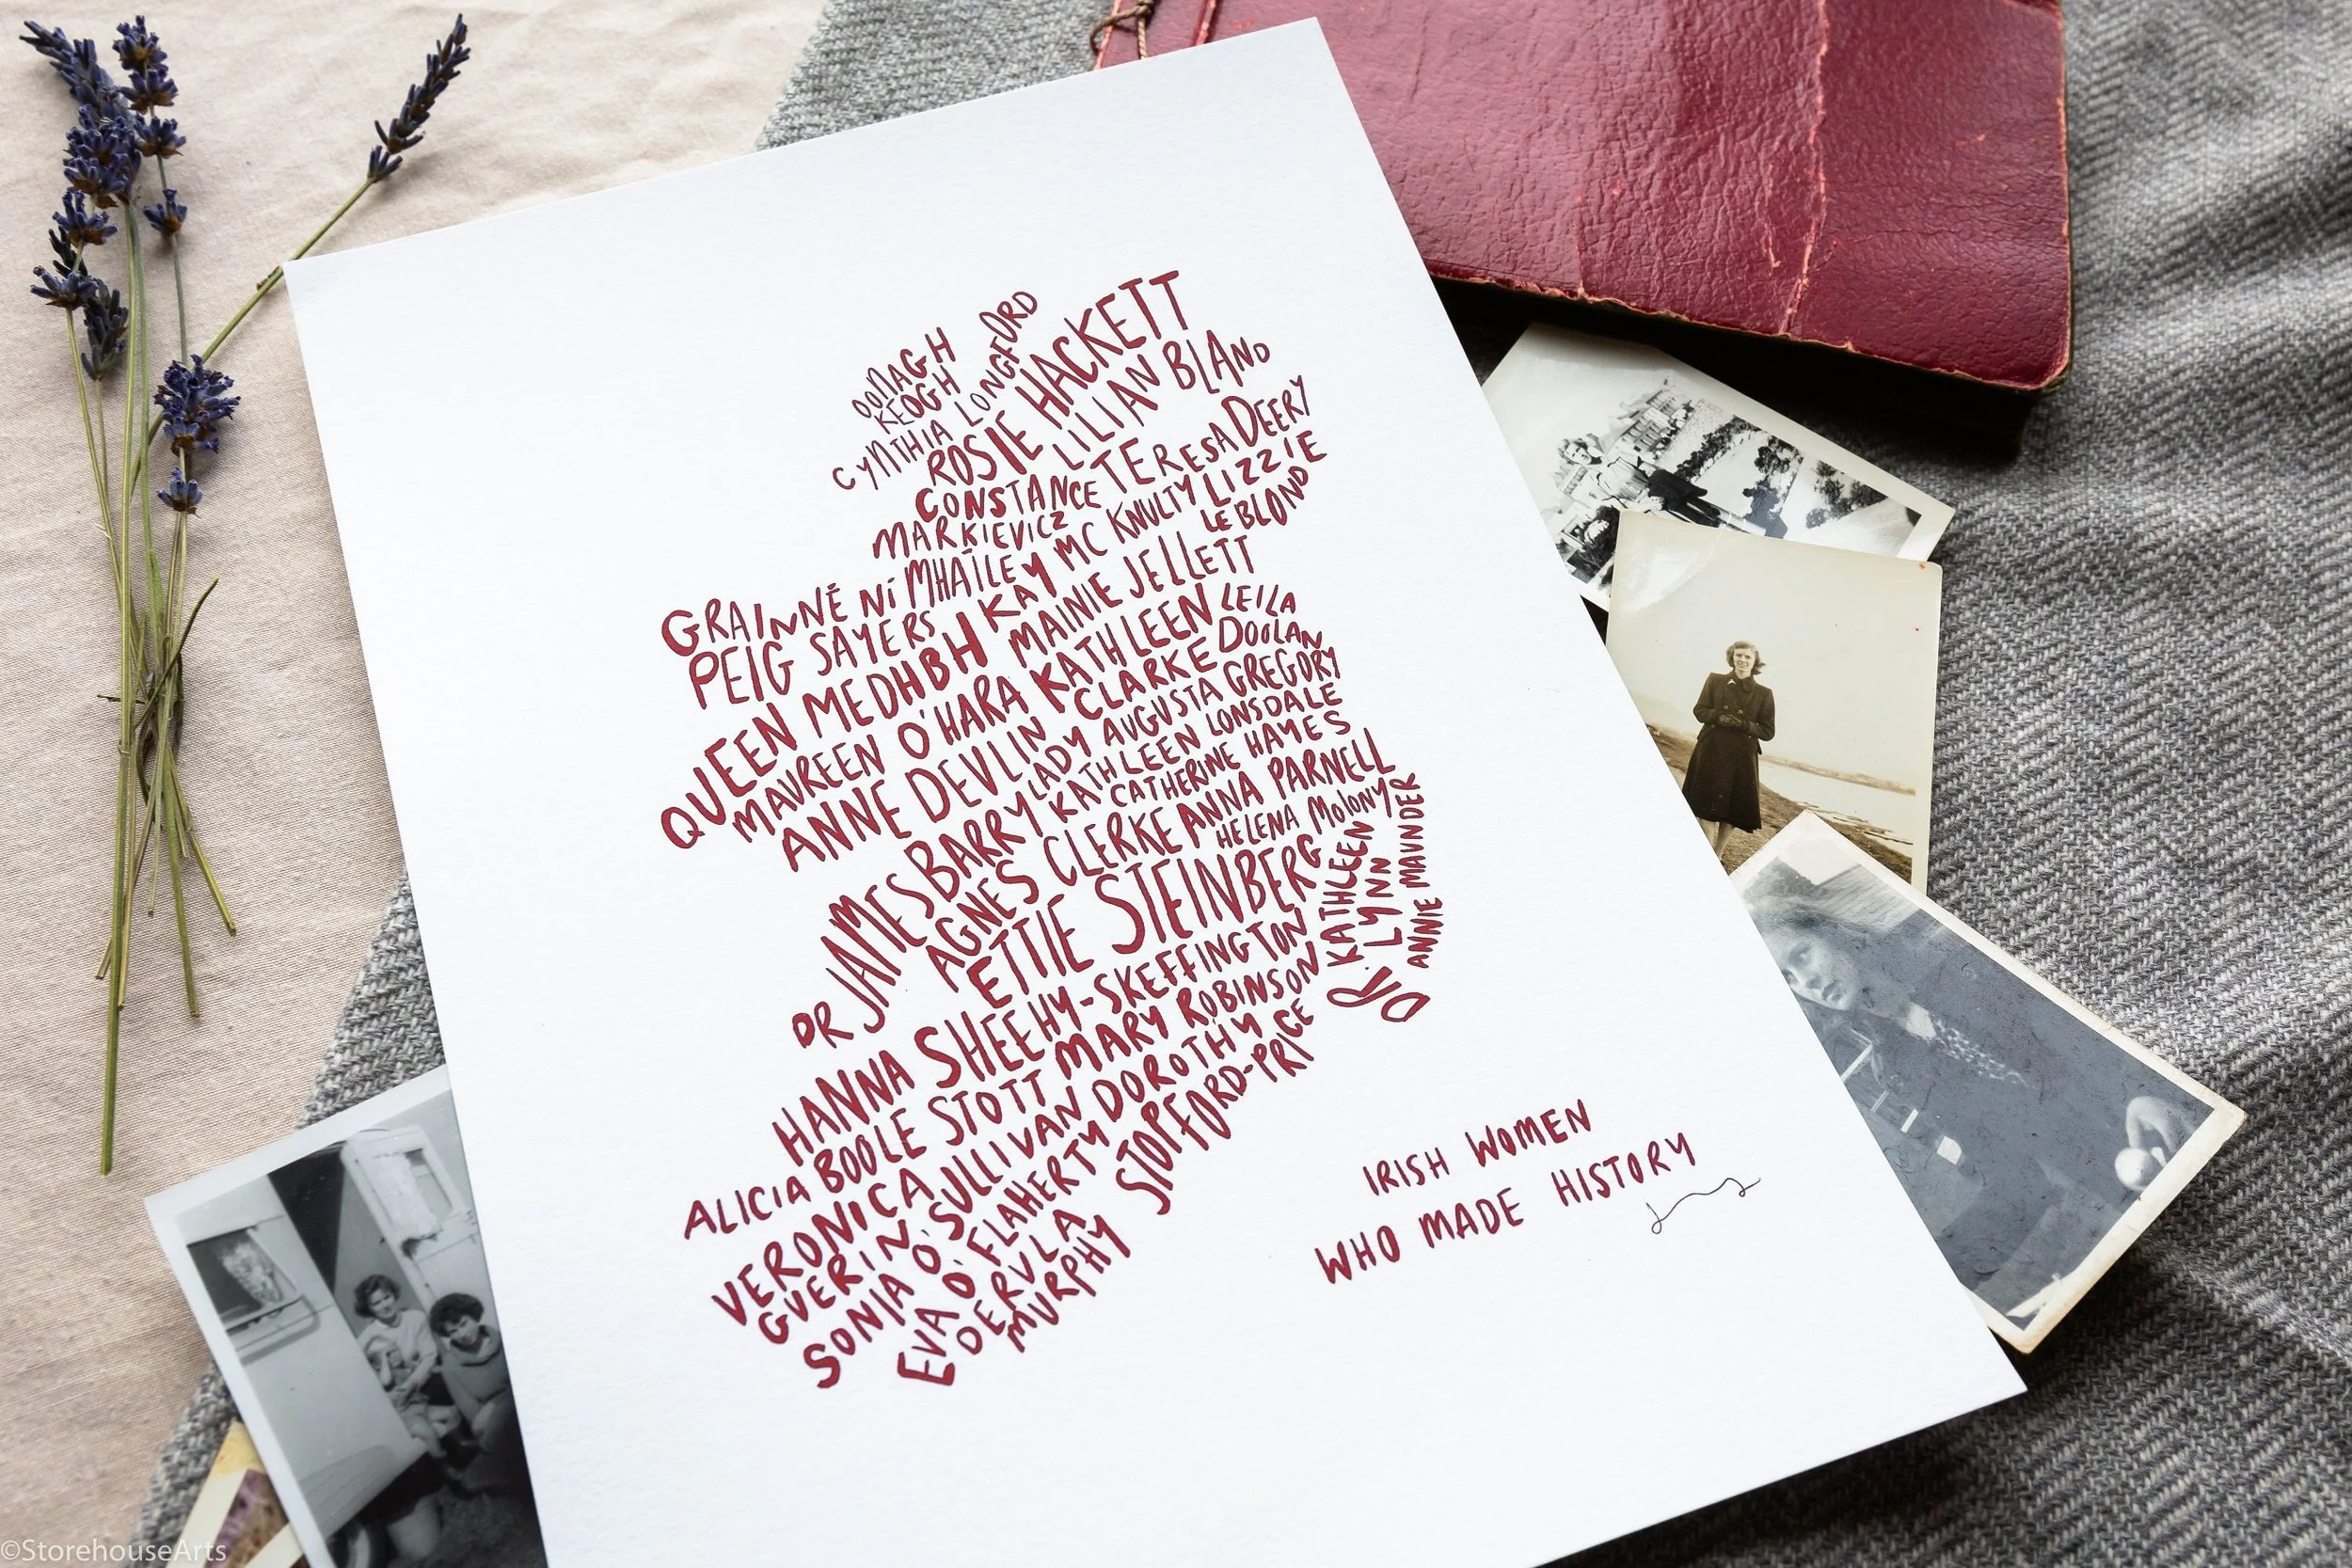 OONAGH
KEOGH
CYNTHIA LONGFORD
ROSIE HACKETT
LILIAN BLAND
CONSTANCE
MARKIEVICZ
TERESA DEERY
GRAINNÉ NÍ MHAÍLEY
MC KNULTY
LIZZIE
LE BLOND
PEIG SAYERS
KAY
QUEEN MEDHBH
MAINIE JELLETT
MAUREEN O'HARA
KATHLEEN
CLARKE
LEILA
DOOLAN
ANNE DEVLIN
LADY AUGUSTA GREGORY
KATHLEEN LONSDALE
CATHERINE HAYES
DR JAMES BARRY
AGNES CLERKE
ANNA PARNELL
HELENA MOLONY
ETTIE STEINBERG
DR. KATHLEEN
LYNN
ANNIE MAUNDER
HANNA SHEEHY-SKEFFINGTON
ALICIA BOOLE STOTT
MARY ROBINSON
VERONICA
GUERIN
SONIA O'SULLIVAN
DOROTHY
STOPFORD-PRICE
EVA O'FLAHERTY
DERVLA
MURPHY
IRISH WOMEN
WHO MADE HISTORY
©StorehouseArts